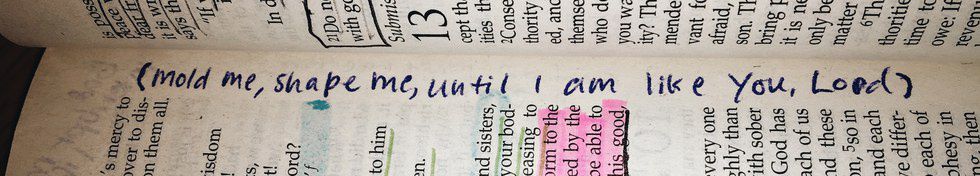 (mold me, shape me, until I am like You, Lord)
's mercy to
over to dis-
on them all.
isdom
ord?
to him
en.
nd sisters,
your bod-
easing to
orm to the
ed by the
be able to
his good,
very one
ghly than
ith sober
God has
ach of us
nd these
n, 5so in
and each
ve differ-
o each of
phesy in
then
says
"If
In
21Do
with
13
cept tha
ities th
2Conse
thority
ed, and
themse
who do
you wa
ity? Th
mende
vant fo
afraid,
son. Th
bring
it is ne
only be
matter
6Th
thoritie
time to
owe: If